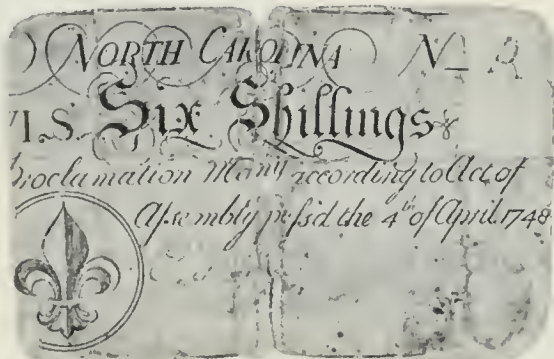 ) NORTH CAROLINA No
VI.S. Six Shillings
Proclamation Mony according to Act of
Assembly pass'd the 4th of April 1748